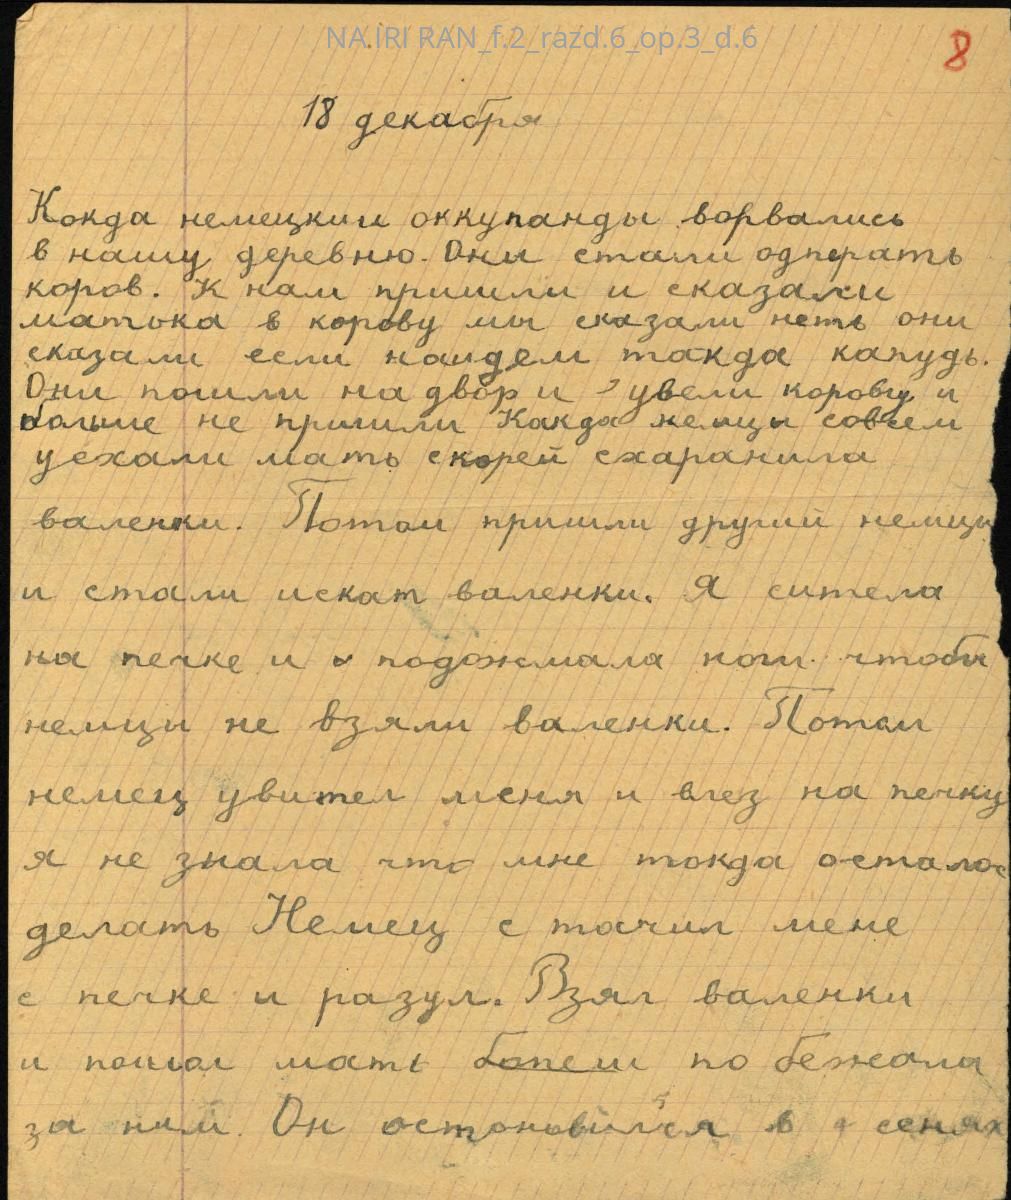 NA IRI RAN_f.2_razd.6_op.3_d.6
8
18 декабря
Кокда немецкии оккупанды ворвались
в нашу деревню. Они стали одпирать
коров. К нам пришли и сказали
матока в корову мы сказали неть они
сказали если наидем такда капудь.
Они пошли на двор и увели корову и
больше не пришли Какда немцы совсем
уехали мать скорей схаранила
валенки. Потом пришли другий немцы
и стали искат валенки. Я сител­а
на печке и подожмала ноги чтобы
немцы не взяли валенки. Потом
немец увител меня и влез на печку
я не знала что мне токда осталос
делать Немец с тачил мене
с печке и разул. Взял валенки
и пошол мать по бежала
за ним. Он остоновился в сенях